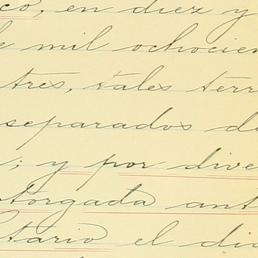 co, en diez y
de mil ochocien
tres, tales terr
separados de
; y por dive
otorgada ant
tario el dia